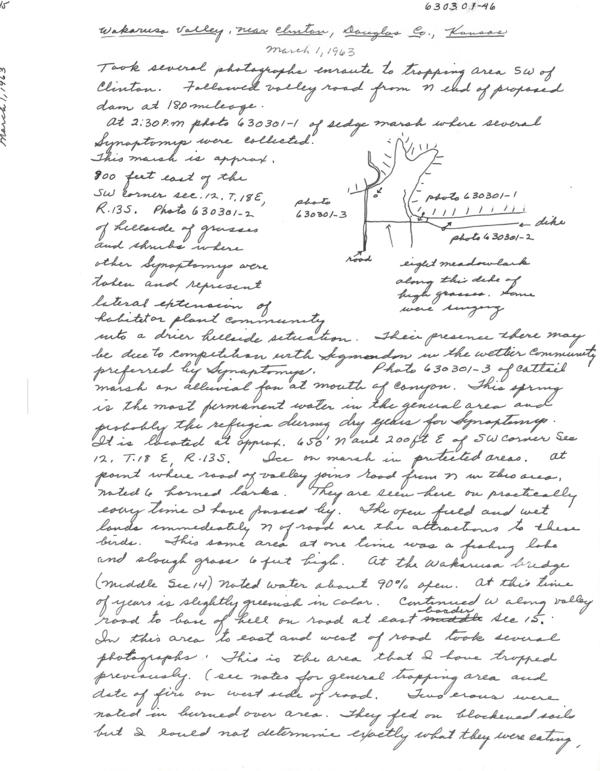 630301-46
Wakarusa Valley, near Clinton, Douglas Co., Kansas
March 1, 1963
March 1, 1963
Took several photographs enroute to trapping area SW of
Clinton. Followed valley road from N end of proposed
dam at 180 mileage.
At 2:30 P.m photo 630301-1 of sedge marsh where several
Synaptomys were collected.
This marsh is approx.
800 feet east of the
SW corner sec. 12. T.18E,
R.13S. Photo 630301-2
of hillside of grasses
and shrubs where
other Synaptomys were
taken and represent
lateral extension of
habitat or plant community
photo
630301-3
photo 630301-1
dike
photo 630301-2
road
eight meadowlark
along this dike of
high grasses. Some
were singing
into a drier hillside situation. Their presence there may
be due to competition with Sigmodon in the wetter community
preferred by Synaptomys. Photo 630301-3 of cattail
marsh on alluvial fan at mouth of canyon. This spring
is the most permanent water in the general area and
probably the refugia during dry years for Synaptomys.
It is located at approx. 650' N and 200ft E of SW Corner Sec
12. T.18 E, R.13S. Ice on marsh in protected areas. At
point where road of valley joins road from N in this area,
noted 6 horned larks. They are seen here on practically
every time I have passed by. The open field and wet
lands immediately N of road are the attractions to these
birds. This same area at one time was a fishing lake
and slough grass 6 feet high. At the Wakarusa bridge
(middle Sec 14) Noted water about 90% open. At this time
of years is slightly greenish in color. Continued W along valley
road to base of hill on road at east middle border Sec 15.
In this area to east and west of road took several
photographs. This is the area that I have trapped
previously. (see notes for general trapping area and
date of fire on west side of road. Two crows were
noted in burned over area. They fed on blackened soils
but I could not determine exactly what they were eating,